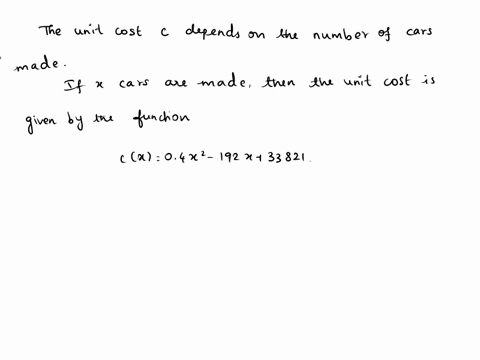 The unit cost c depends on the number of cars
made.
If x cars are made, then the unit cost is
given by the function
c(x) = 0.4x² - 192x + 33821.